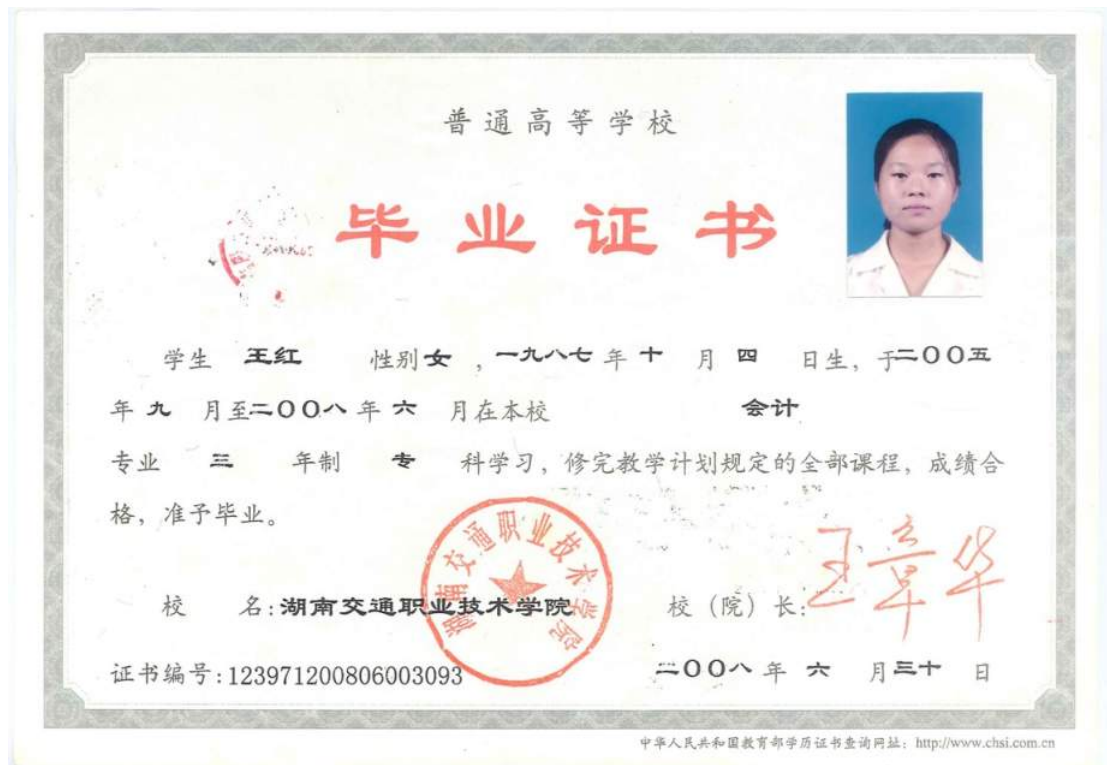 普通高等学校
毕业证书
学生 王红 性别女，一九八七年十月四日生，于二〇〇五
年九月至二〇〇八年六月在本校 会计
专业 三 年制 专 科学习，修完教学计划规定的全部课程，成绩合
格，准予毕业。
湖南交通职业技术学院
校 名:湖南交通职业技术学院 校（院）长:王章华
证书编号:123971200806003093 二〇〇八年六月三十日
中华人民共和国教育部学历证书查询网址：http://www.chsi.com.cn